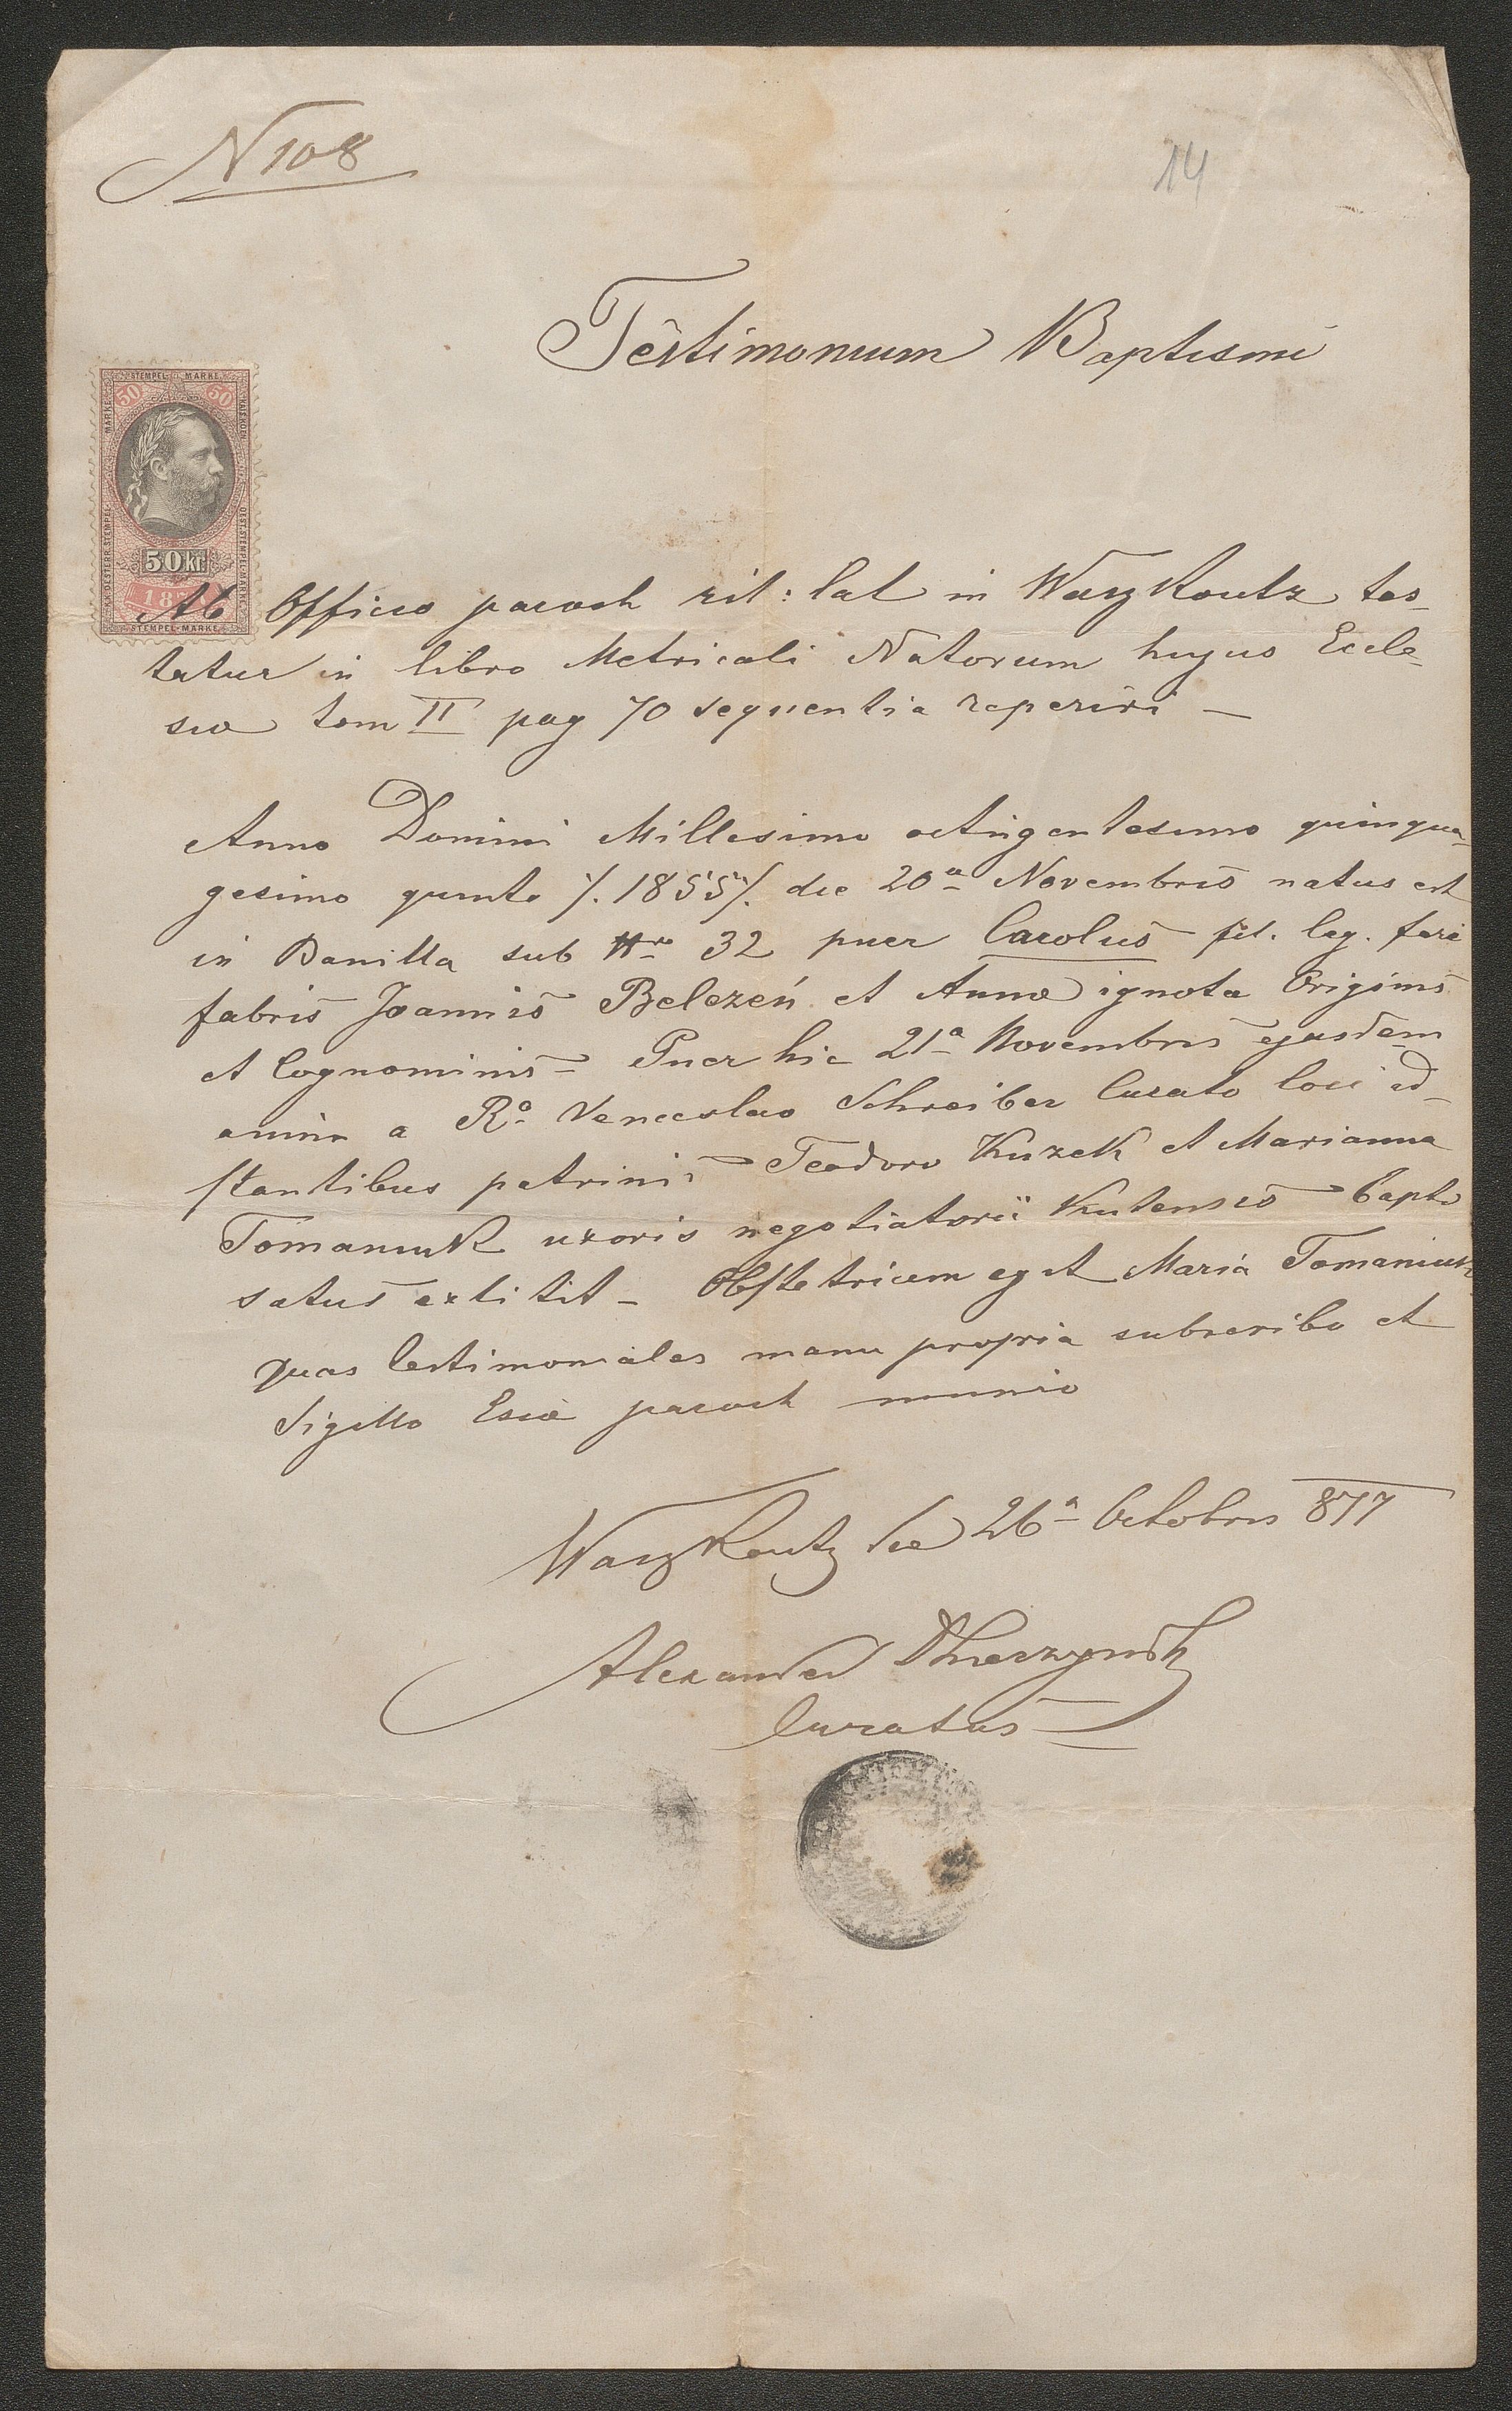 N 108
14
Testimonium Baptismi
STEMPEL MARKE
50 50
50 Kr
STEMPEL-MARKE
Ab Officio paroch rit: lat in Waszkoutz tes-
tatur in libro Metricali Natorum hujus Eccle-
siæ tom II pag 70 sequentia reperiri -
Anno Domini Millesimo octingentesimo quinqua-
gesimo quinto /. 1855 /. die 20a Novembris natus est
in Banilla sub Nro 32 puer Carolus fil. leg. feri
fabris Joannis Belezeń et Annæ ignota Originis
et Cognominis - Puer hic 21a Novembris ejusdem
anni a Ro Venceslao Schreiber Curato loci ad-
stantibus patrinis Teodoro Kuzek et Marianna
Tomaniuk uxoris negotiatorii Kutensis bapti
satus extitit - Obstetricem egit Maria Tomaniuk
quas testimoniales manu propria subscribo et
Sigillo Esiæ paroch munio
Waszkoutz die 26a Octobris 877
Alexander
Curatus